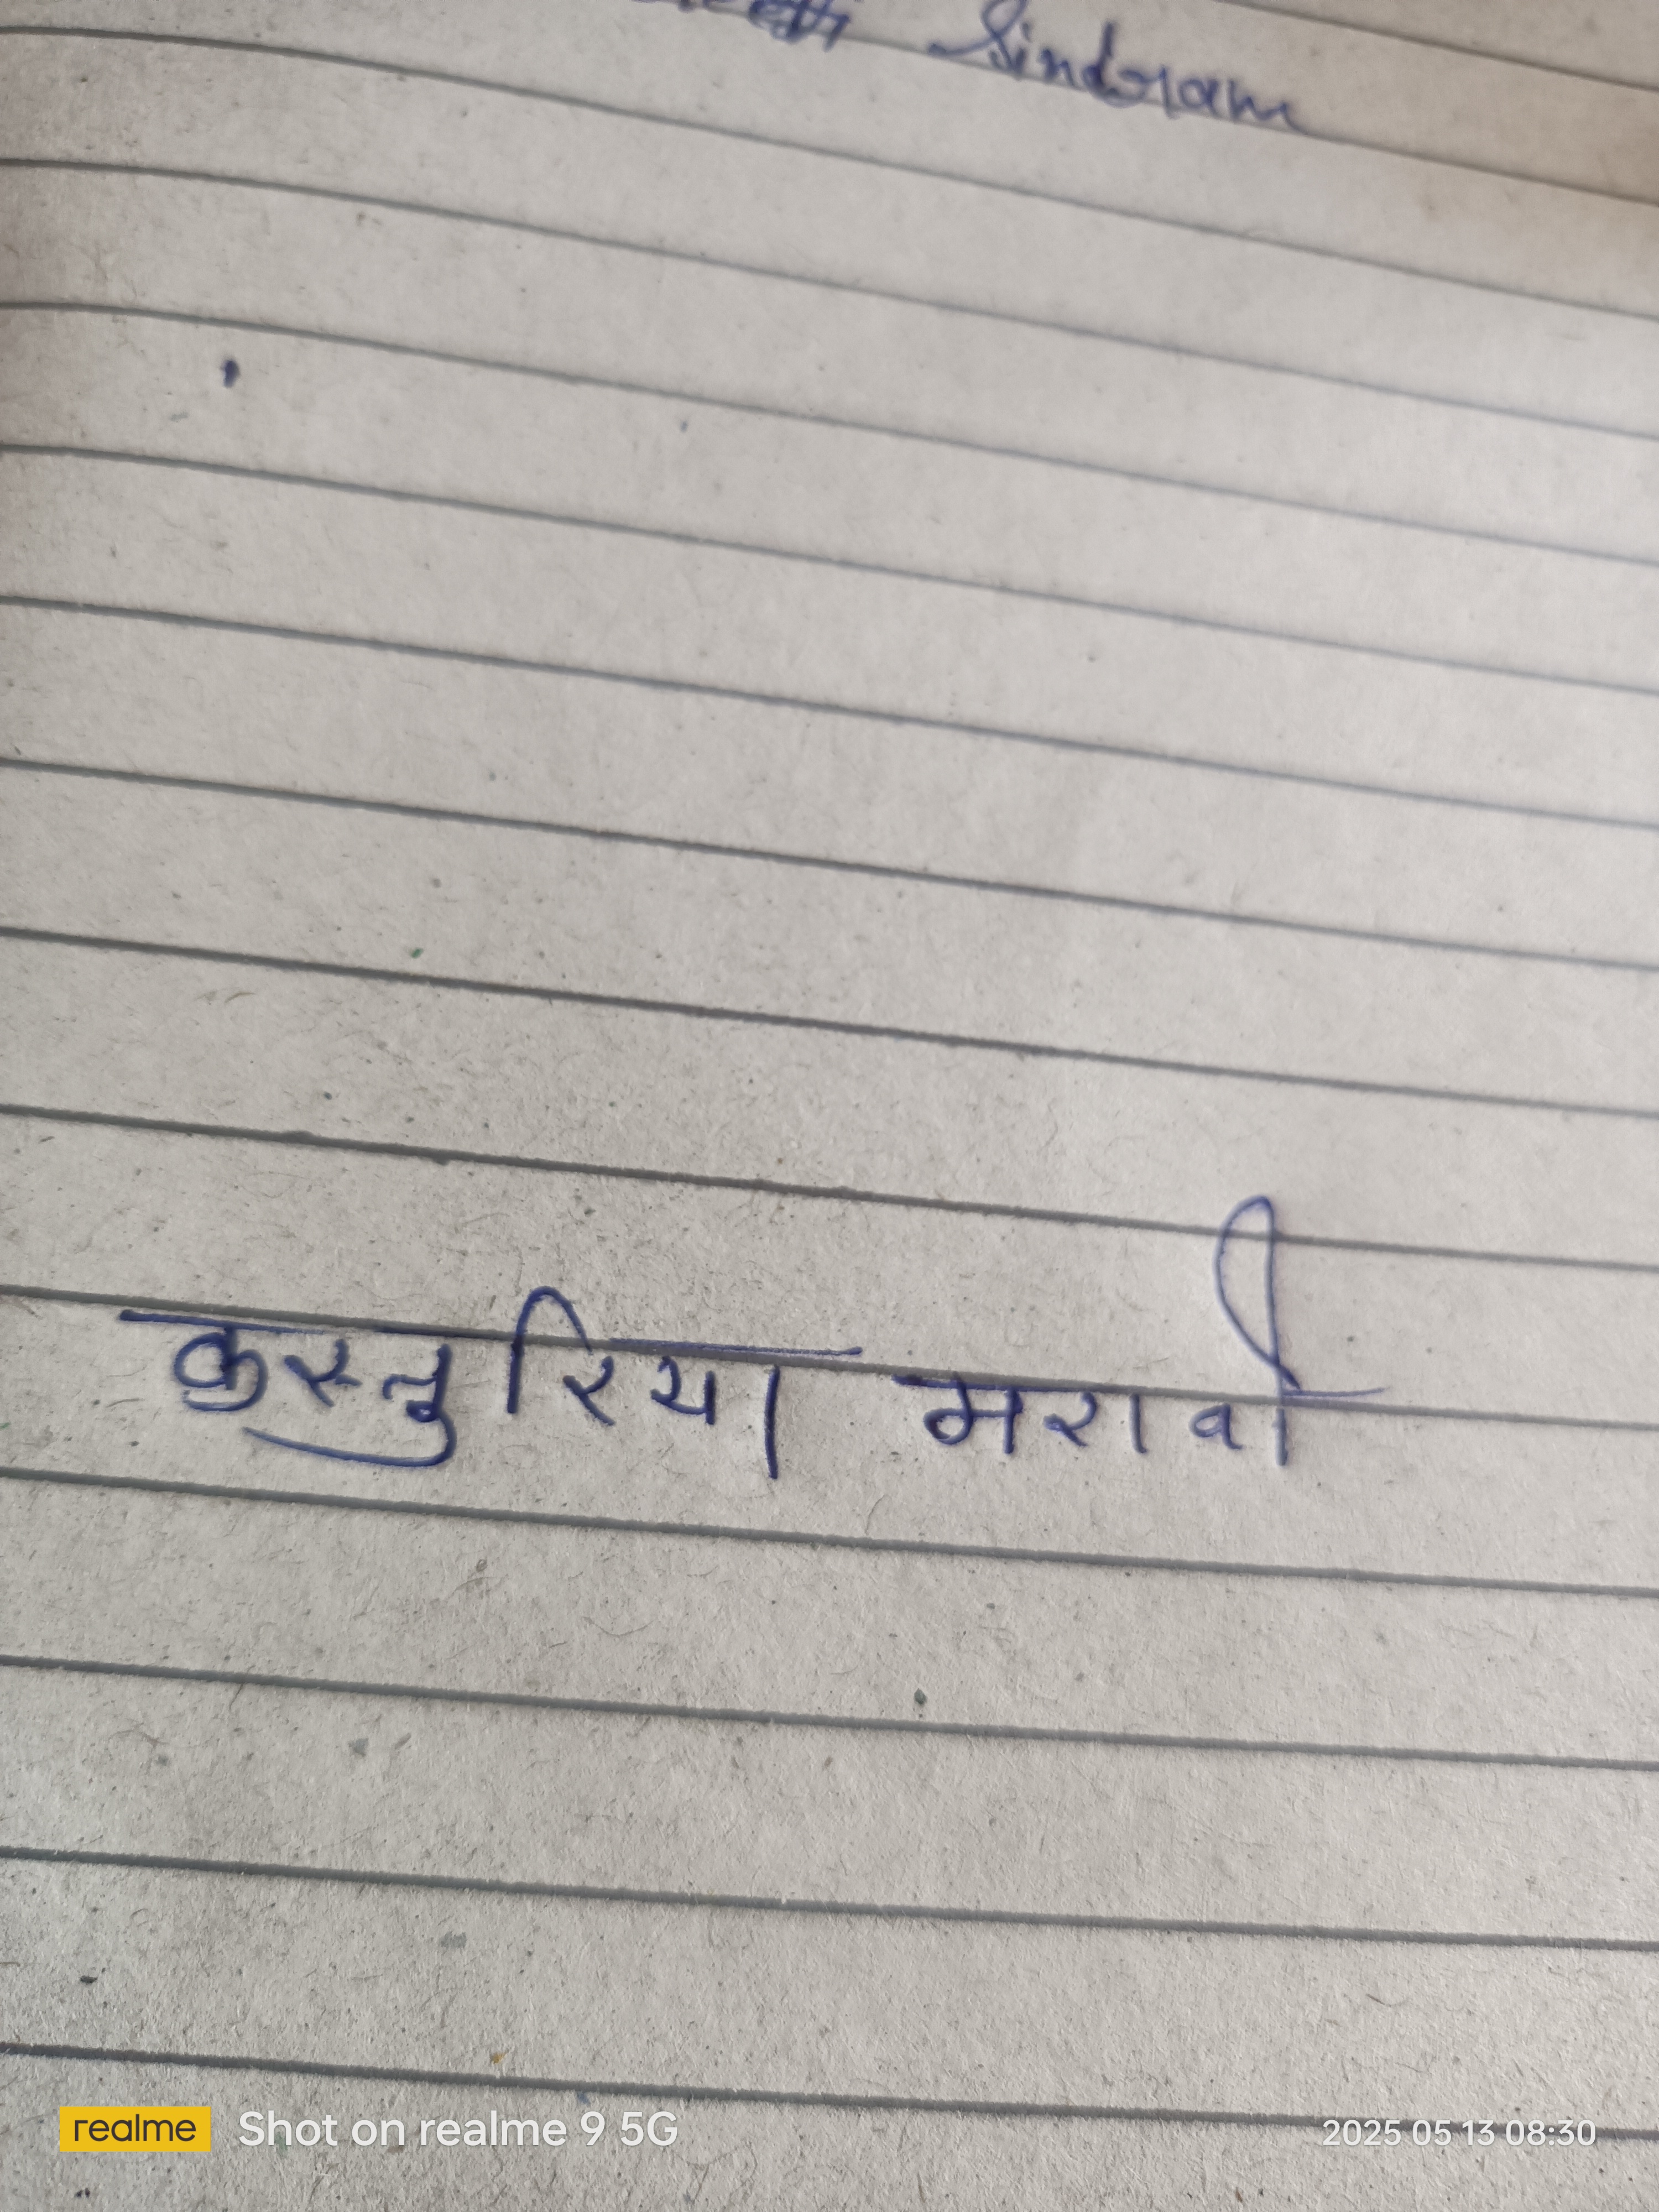 Sindram
कस्तुरिया मरावी
realme Shot on realme 9 5G
2025 05 13 08:30